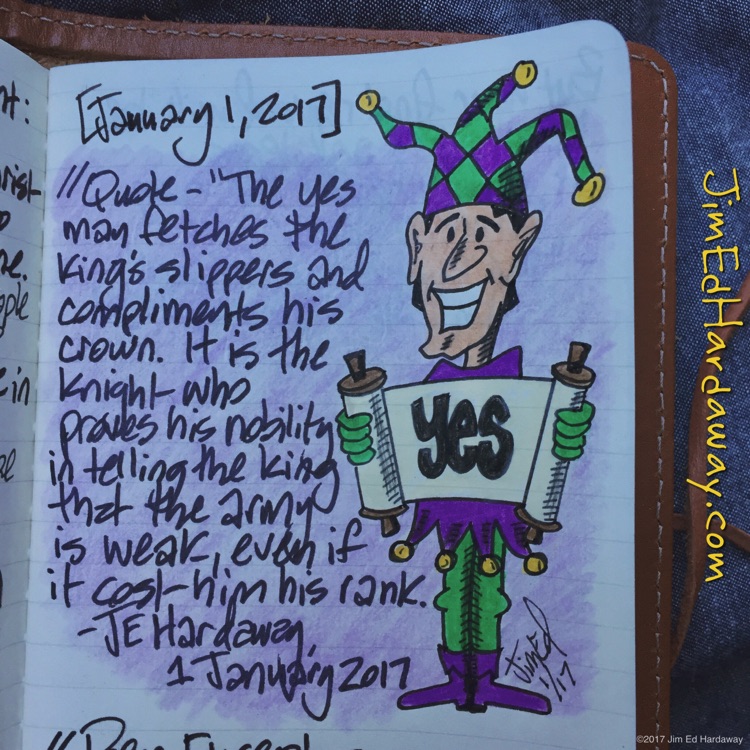 [January 1, 2017]
//Quote - "The yes
man fetches the
king's slippers and
compliments his
crown. It is the
knight who
proves his nobility
in telling the king
that the army
is weak, even if
it cost him his rank.
- JE Hardaway,
1 January 2017
yes
JimEd
1/17
JimEdHardaway.com
©2017 Jim Ed Hardaway